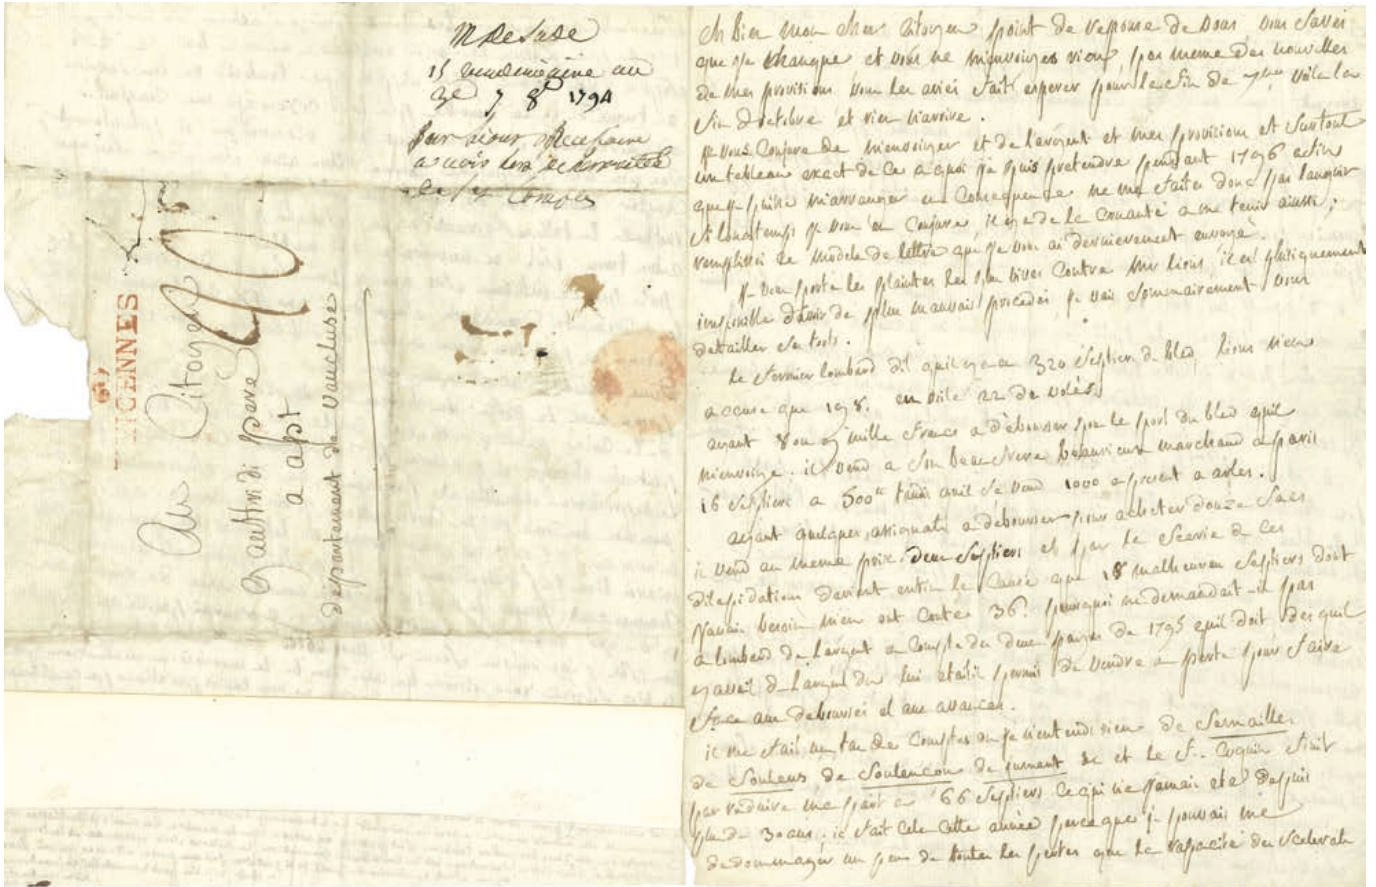 M de Sade
15 vendemiaire an
3e 7 8bre 1794
pour
a
Comptes
P. VINCENNES
Au Citoyen
gaufridi pere
a apt
departement de vaucluse
eh bien mon cher Citoyen point de reponse de vous vous savés
que je manque et vous ne m'envoyes rien, pas meme des nouvelles
de mes provisions vous les aviés fait esperer pour la fin de 7bre voila la
fin d'octobre et rien n'arrive.
je vous Conjure de m'envoyer et de l'argent et mes provisions et surtout
un tableau exact de Ce a quoi je puis pretendre pendant 1796 afin
que je puisse m'arranger en Consequence ne me faites donc pas languir
si longtemps je vous en Conjure, il y a de la cruauté a me tenir ainsi;
remplissés le modele de lettre que je vous ai dernierement envoyé.
je vous porte les plaintes les plus vives Contre mr lions, il est phisiquement
impossible d'avoir de plus mauvais procedés, je vais sommairement vous
detailler ses torts.
le fermier lombard dit qu'il y a eu 320 septiers de bled, lions n'en
accuse que 198. en voila 22 de volés
ayant 8 ou 9 mille francs a debourser pour le port du bled qu'il
m'envoye. il vend a son beau frere marchand a paris
16 septiers a 500tt tandis qu'il se vend 1000 a present a arles.
ayant quelques assignats a debourser pour acheter douze sacs
il vend au meme prix deux septiers et par la de ces
dilapidations devient enfin la Cause que 18 malheureux septiers dont
j'avais besoin m'en ont Couté 36. pourquoi ne demandait-il pas
a lombard de l'argent a Compte des deux payes de 1795 qu'il doit des qu'il
y avait de l'argent du lui etait-il permis de vendre a perte pour faire
face aux deboursés et aux avances.
il me fait un tas de Comptes ou je n'entends rien de semailles
de Soulens de Soulencon de jument &c et le f.. Coquin finit
par reduire ma part a 66 septiers Ce qui n'a jamais eté depuis
plus de 30 ans. il fait Cela Cette année parceque je pouvais me
dedommager un peu de toutes les pertes que la rapacité des scelerats